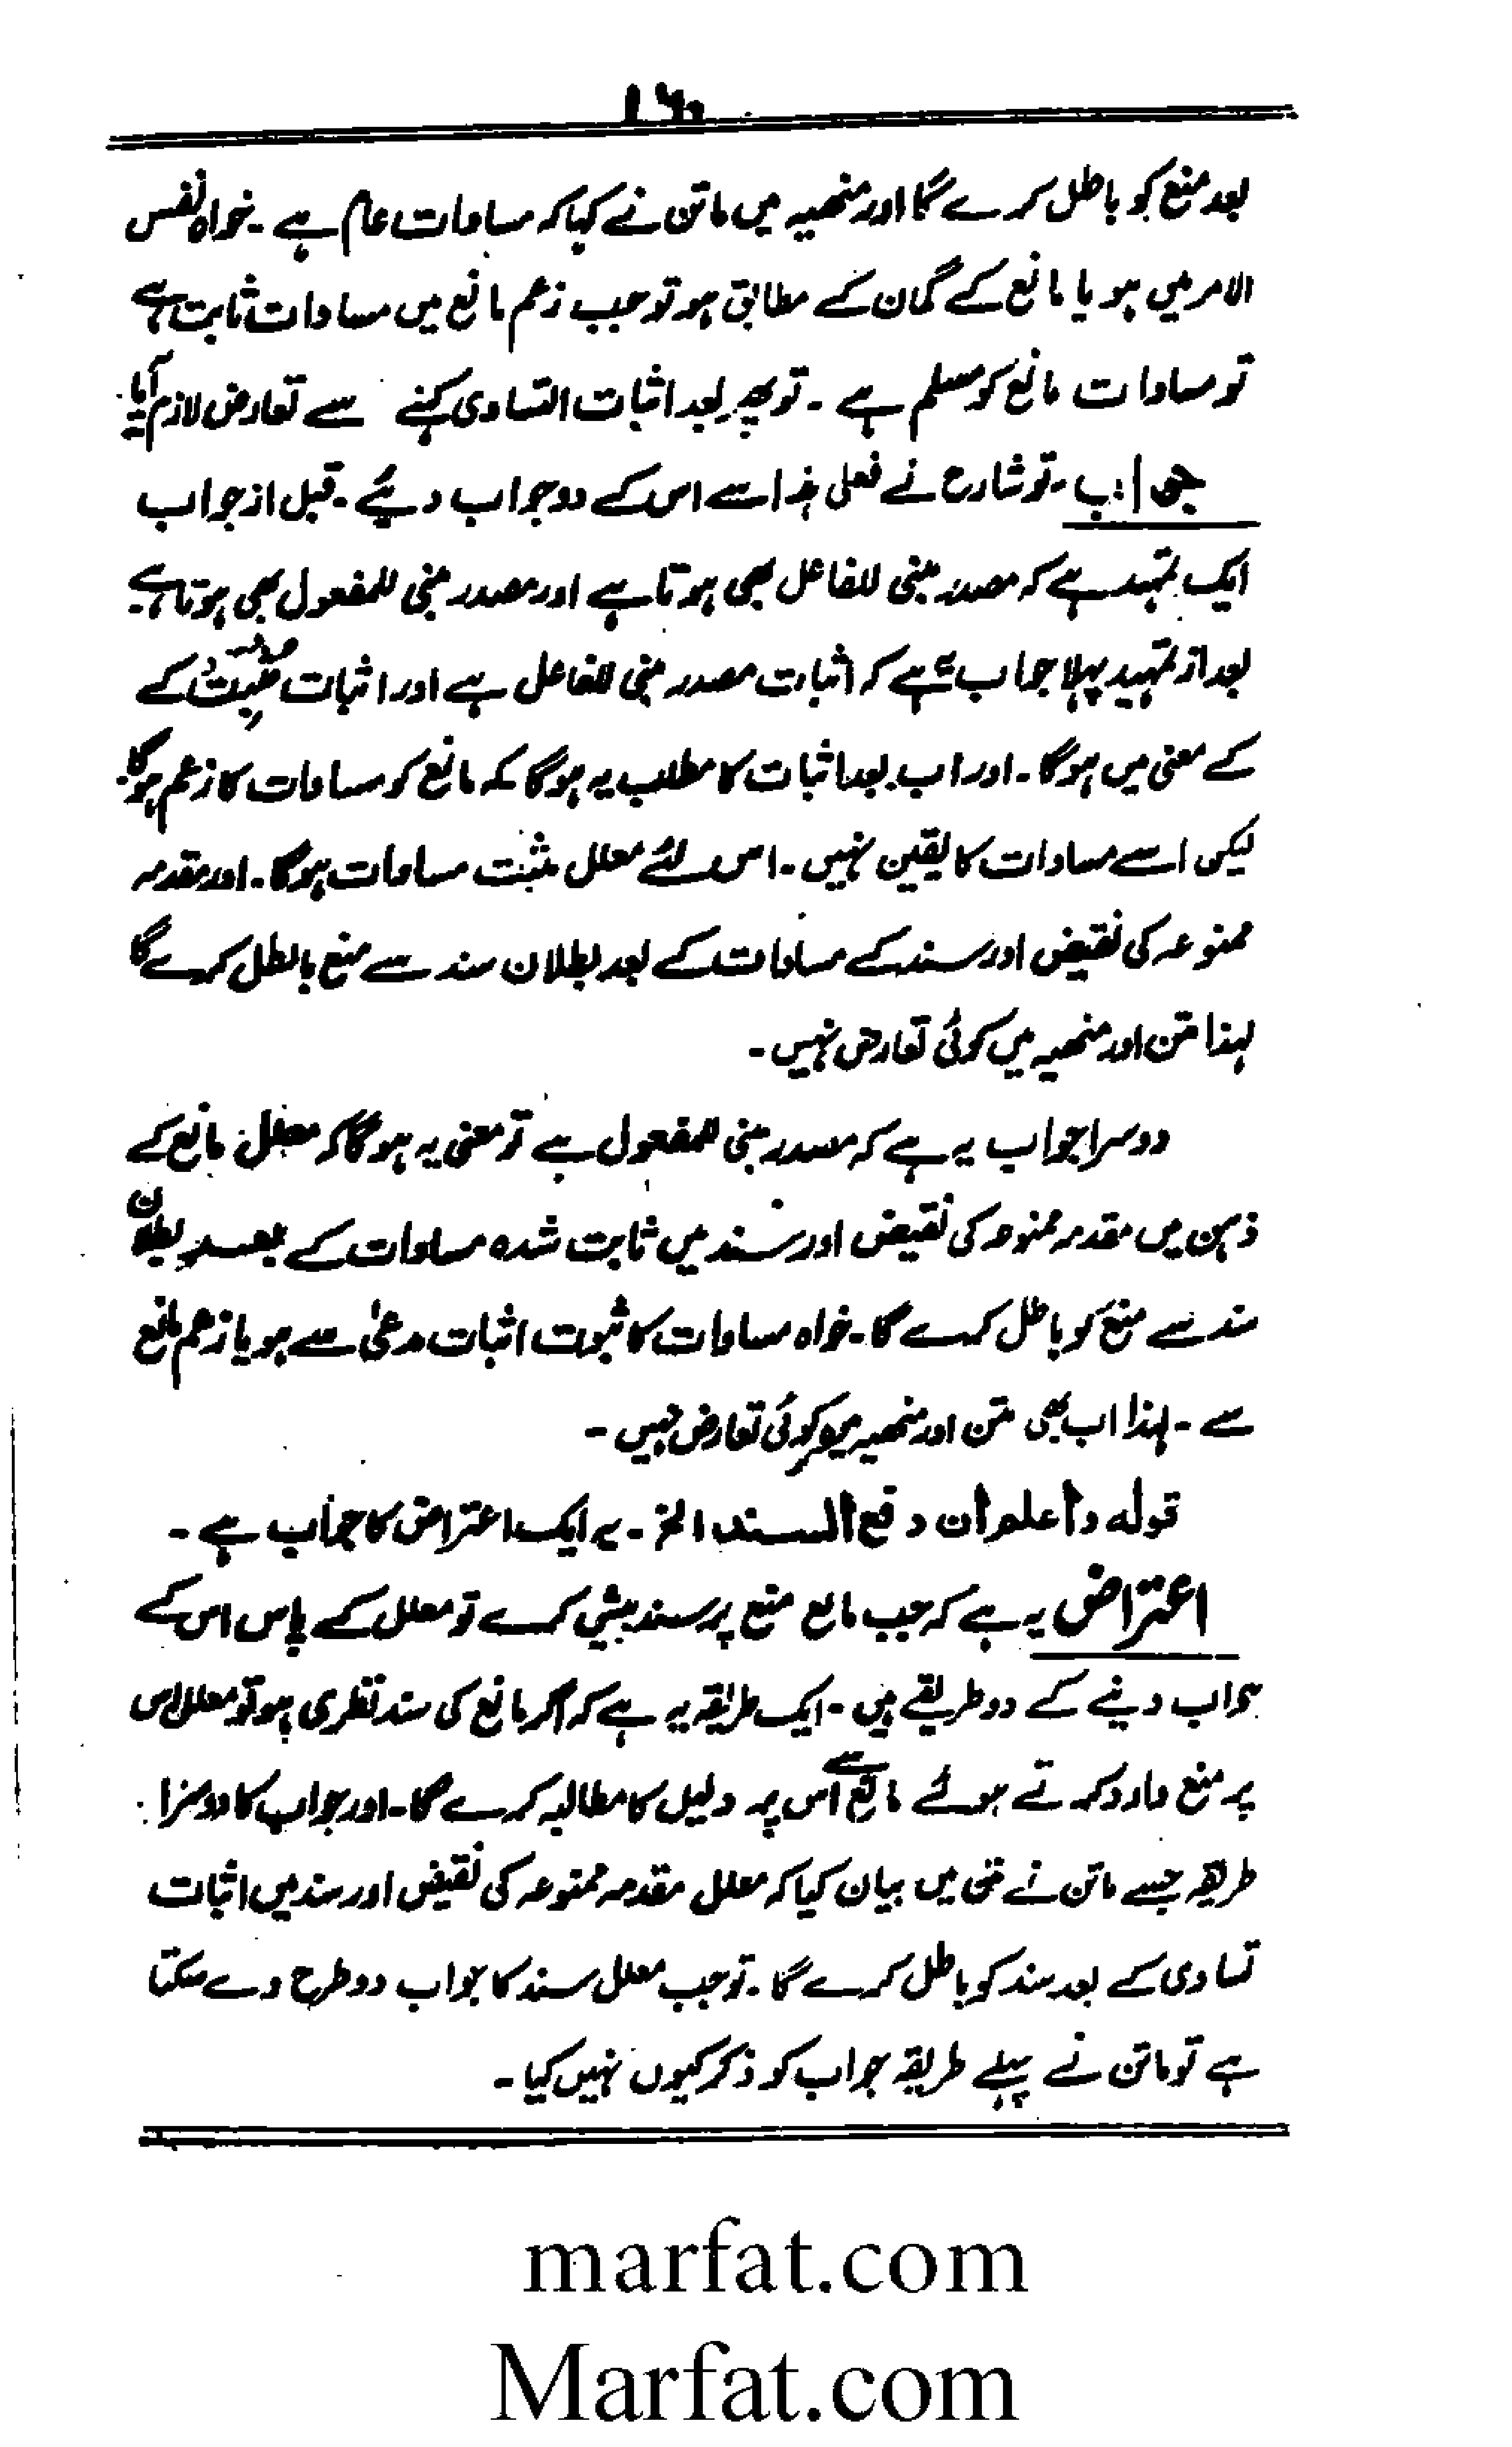 بعد منع کو باطل کرے گا اور منھیہ میں ماتن نے کہا کہ مساوات عام ہے ۔ خواہ نفس
الامر میں ہو یا مانع کے گمان کے مطابق ہو تو جب زعم مانع میں مساوات ثابت ہے
تو مساوات مانع کو مسلم ہے ۔ تو پھر بعد اثبات التساوی کہنے سے تعارض لازم آیا
جواب ۔ تو شارح نے فعلی ہذا سے اس کے دو جواب دیئے ۔ قبل از جواب
ایک تمہید ہے کہ مصدر مبنی للفاعل بھی ہوتا ہے اور مصدر مبنی للمفعول بھی ہوتا ہے ۔
بعد از تمہید پہلا جواب یہ ہے کہ اثبات مصدر مبنی للفاعل ہے اور اثبات مثبت کے
کے معنی میں ہوگا ۔ اور اب بعد اثبات کا مطلب یہ ہوگا کہ مانع کو مساوات کا زعم ہوگا
لیکن اسے مساوات کا یقین نہیں ۔ اس لئے معلل مثبت مساوات ہوگا ۔ اور مقدمہ
ممنوعہ کی نقیض اور سند کے مساوات کے بعد بطلان سند سے منع باطل کرے گا
لہذا متن اور منھیہ میں کوئی تعارض نہیں ۔
دوسرا جواب یہ ہے کہ مصدر مبنی للمفعول ہے تو معنی یہ ہوگا کہ معلل مانع کے
ذہن میں مقدمہ ممنوعہ کی نقیض اور سند میں ثابت شدہ مساوات کے بعد بطلان
سند سے منع کو باطل کرے گا ۔ خواہ مساوات کا ثبوت اثبات مدعیٰ سے ہو یا زعم مانع
سے ۔ لہذا اب بھی متن اور منھیہ میں کوئی تعارض نہیں ۔
قوله واعلم ان دفع السند الخ ۔ یہ ایک اعتراض کا جواب ہے ۔
اعتراض یہ ہے کہ جب مانع منع پر سند پیش کرے تو معلل کے پاس اس کے
جواب دینے کے دو طریقے ہیں ۔ ایک طریقہ یہ ہے کہ اگر مانع کی سند نظری ہو تو معلل اس
پر منع وارد کرتے ہوئے مانع سے اس پر دلیل کا مطالبہ کرے گا ۔ اور جواب کا دوسرا
طریقہ جسے ماتن نے متن میں بیان کیا کہ معلل مقدمہ ممنوعہ کی نقیض اور سند میں اثبات
تساوی کے بعد سند کو باطل کرے گا ۔ تو جب معلل سند کا جواب دو طرح دے سکتا
ہے تو ماتن نے پہلے طریقہ جواب کو ذکر کیوں نہیں کیا ۔
marfat.com
Marfat.com